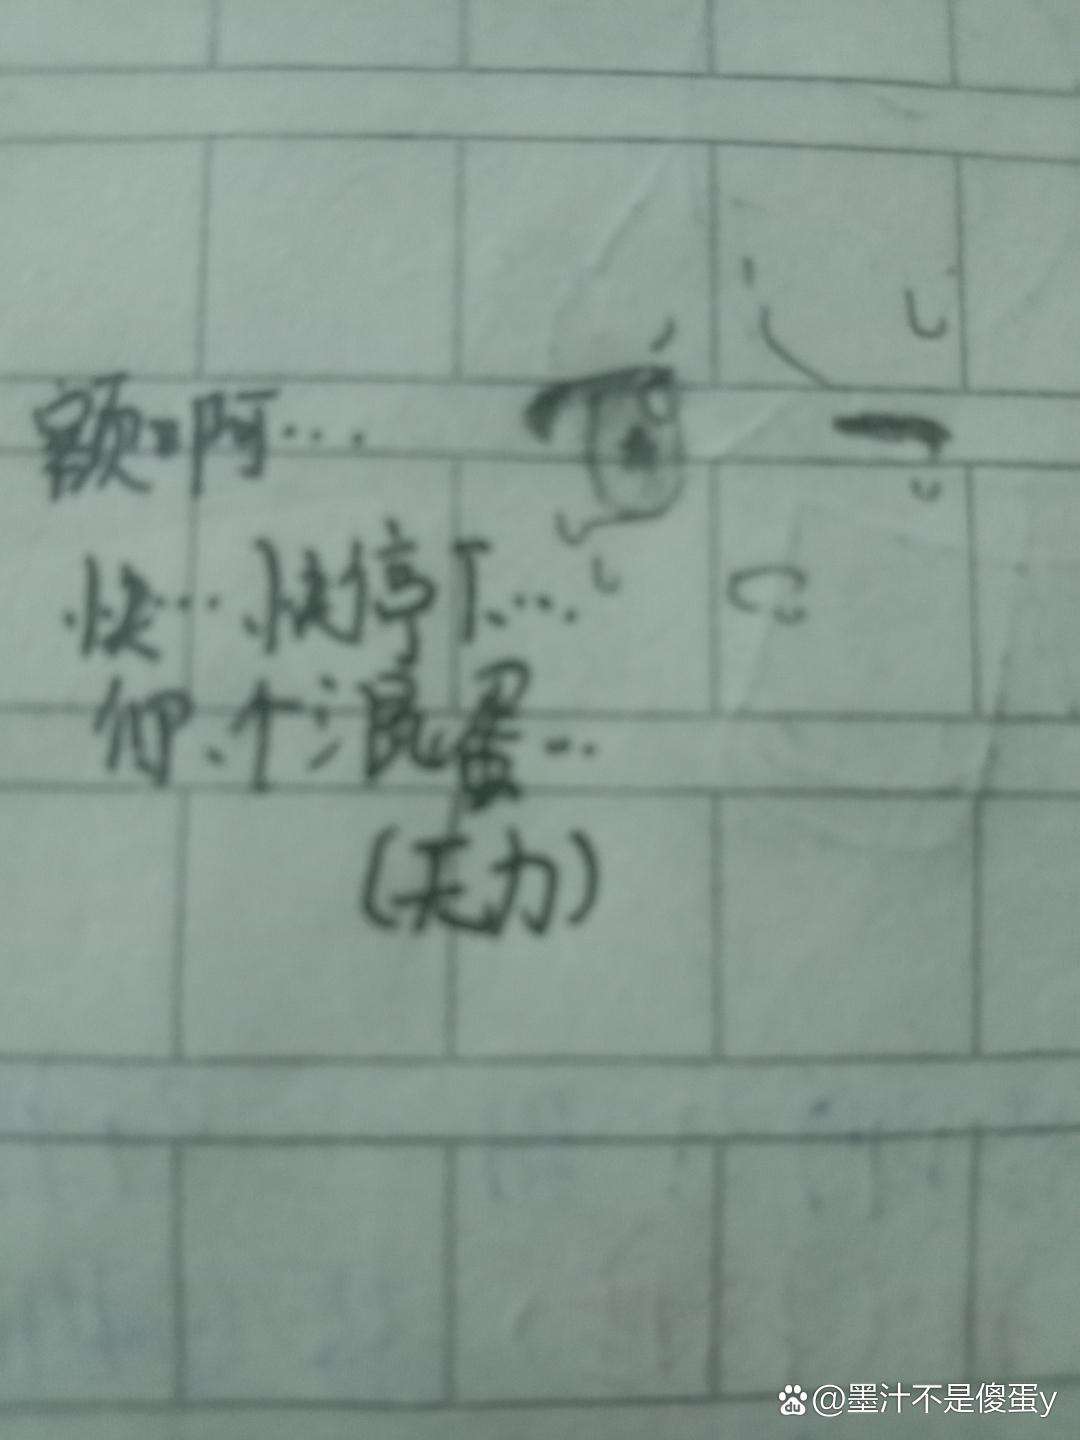 额啊…
快…快停下…
你个混蛋…
(无力)
@墨汁不是傻蛋y